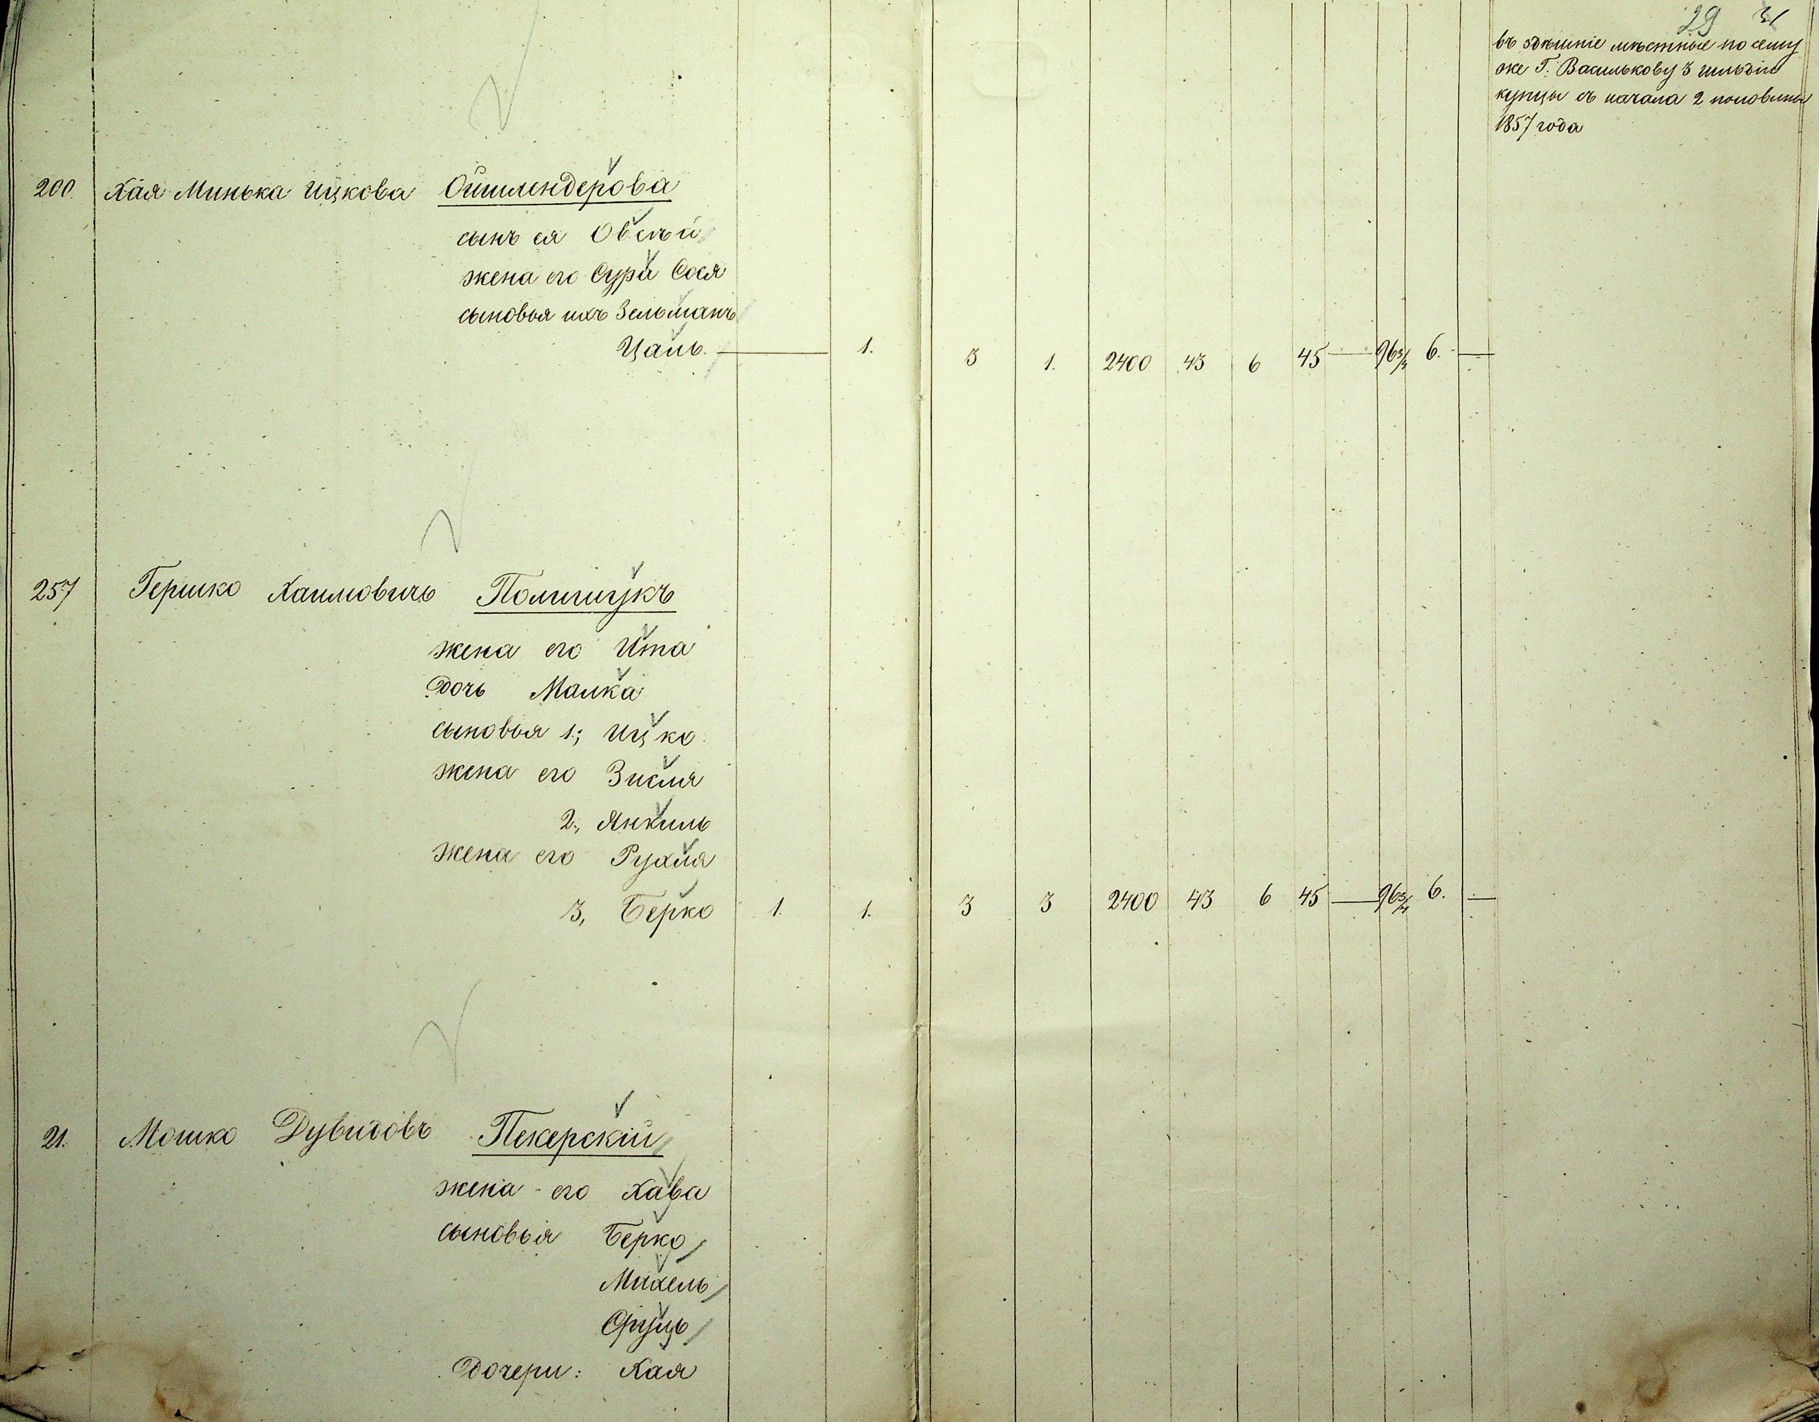 29 31
въ здѣшніе мѣстные по сему
же Г. Василькову 3 гильдіи
купцы съ начала 2 половины
1857 года
200. Хая Минька Ицкова Ойшлендерова
сынъ ея Овсѣй
жена его Сура Сося
сыновья ихъ Зельманъ
Цаль. — 1. 3 1. 2400 43 6 45 — 96¾ 6. —
257 Гершко Хаимовичъ Полищукъ
жена его Ита
Дочь Малка
сыновья 1; Ицко
жена его Зисля
2, Янкиль
жена его Рухля
3, Берко 1. 1. 3 3 2400 43 6 45 — 96¾ 6. —
21. Мошко Дувидовъ Пекерскій
жена его Хава
сыновья Берко
Михель
Сруль
Дочери: Хая